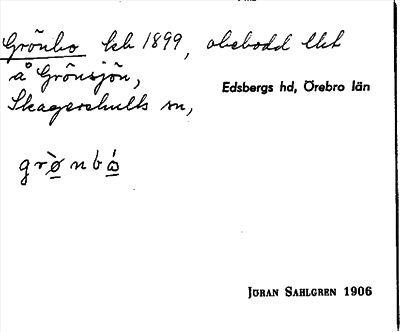 Grönbo kb 1899, obebodd lht
å Grönsjön,
Skagershults sn,
Edsbergs hd, Örebro län
grø̀nbώ
JÖRAN SAHLGREN 1906